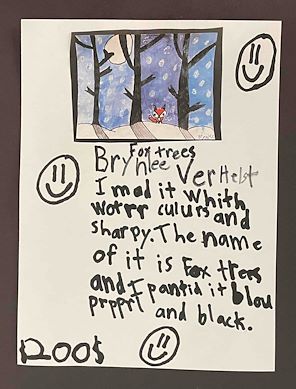 Fox trees
Brynlee VerHelst
I mad it Whith
worrr culurs and
sharpy. The name
of it is Fox trees
and I pantid it blou
prpprt and black.